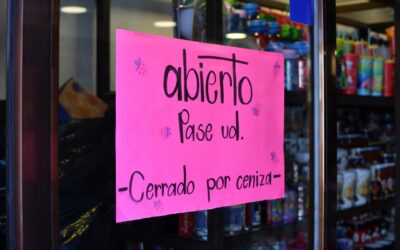 abierto
Pase ud.
-Cerrado por ceniza-